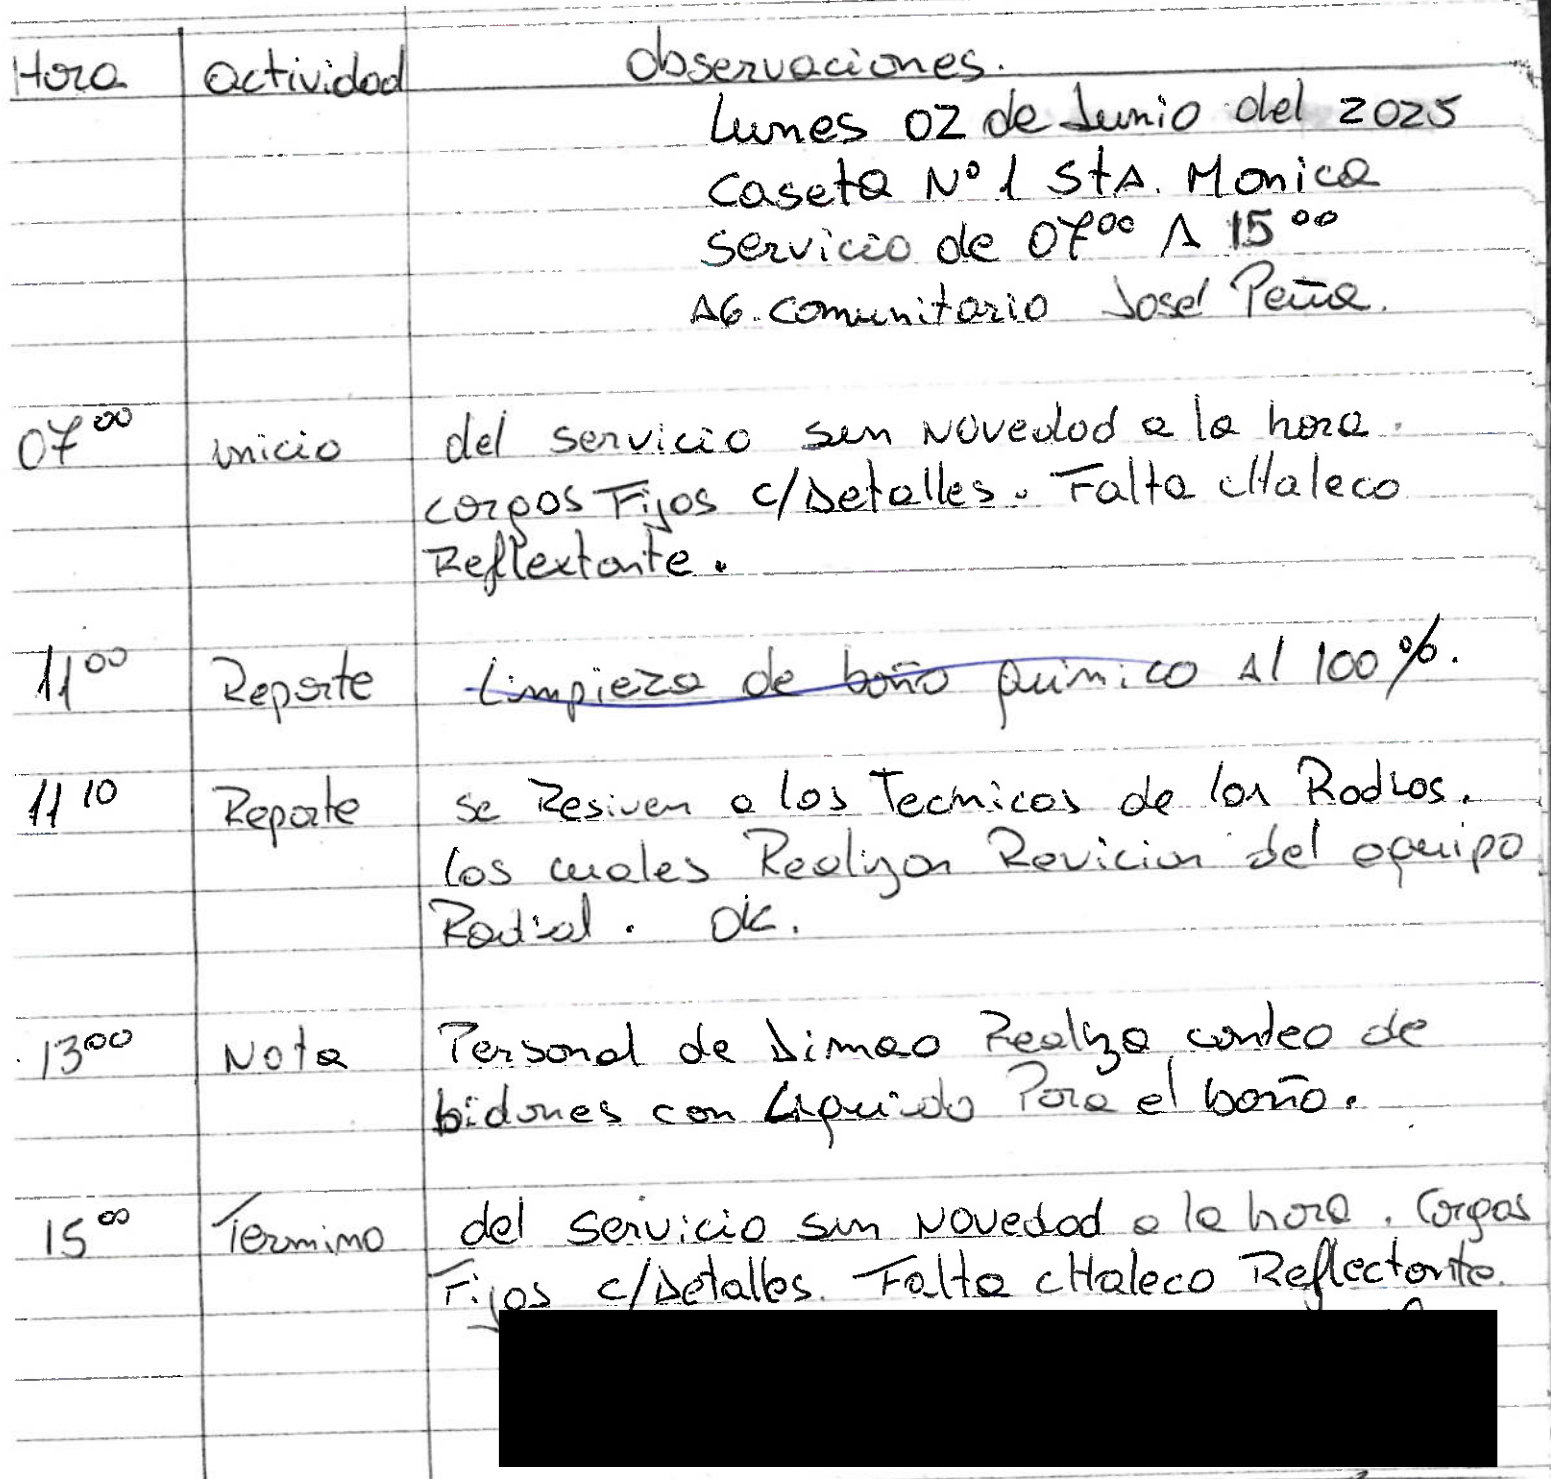 Hora actividad Observaciones.
Lunes 02 de Junio del 2025
Caseta N° 1 StA. Monica
Servicio de 07⁰⁰ A 15⁰⁰
AG. Comunitario José Peña.
07⁰⁰ inicio del servicio sin Novedad a la hora.
cargos Fijos c/Detalles. Falta cHaleco
Reflextante.
11⁰⁰ Reporte Limpieza de baño Quimico Al 100%.
11¹⁰ Reporte se Resiven a los Tecnicos de los Radios.
los cuales Realizan Revicion del equipo
Radial. OK.
13⁰⁰ Nota Personal de Dimao Realiza conteo de
bidones con Liquido Para el baño.
15⁰⁰ Termino del servicio sin Novedad a la hora. Cargos
Fijos c/Detalles. Falta cHaleco Reflectante.